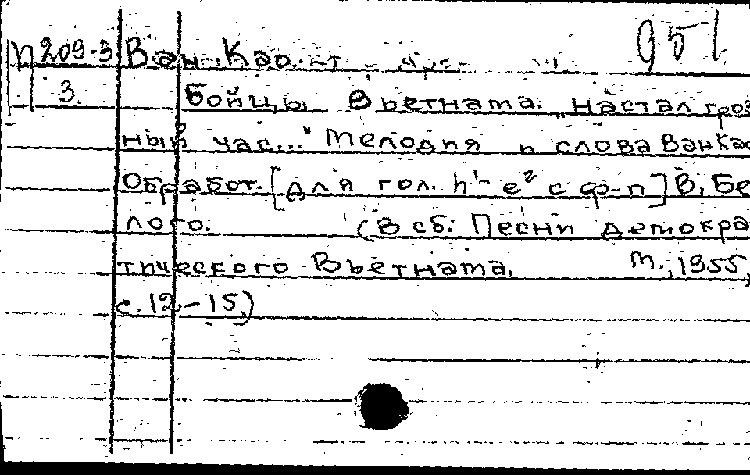 П 209-3 Ван Као 951
3. Бойцы Вьетнама. „Настал гроз
ный час..." Мелодия и слова Ван Као
Обработ. [для гол. h¹-e² с ф-п] В. Бе
лого. (В сб: Песни демокра
тического Вьетнама. М., 1955,
с. 12-15)